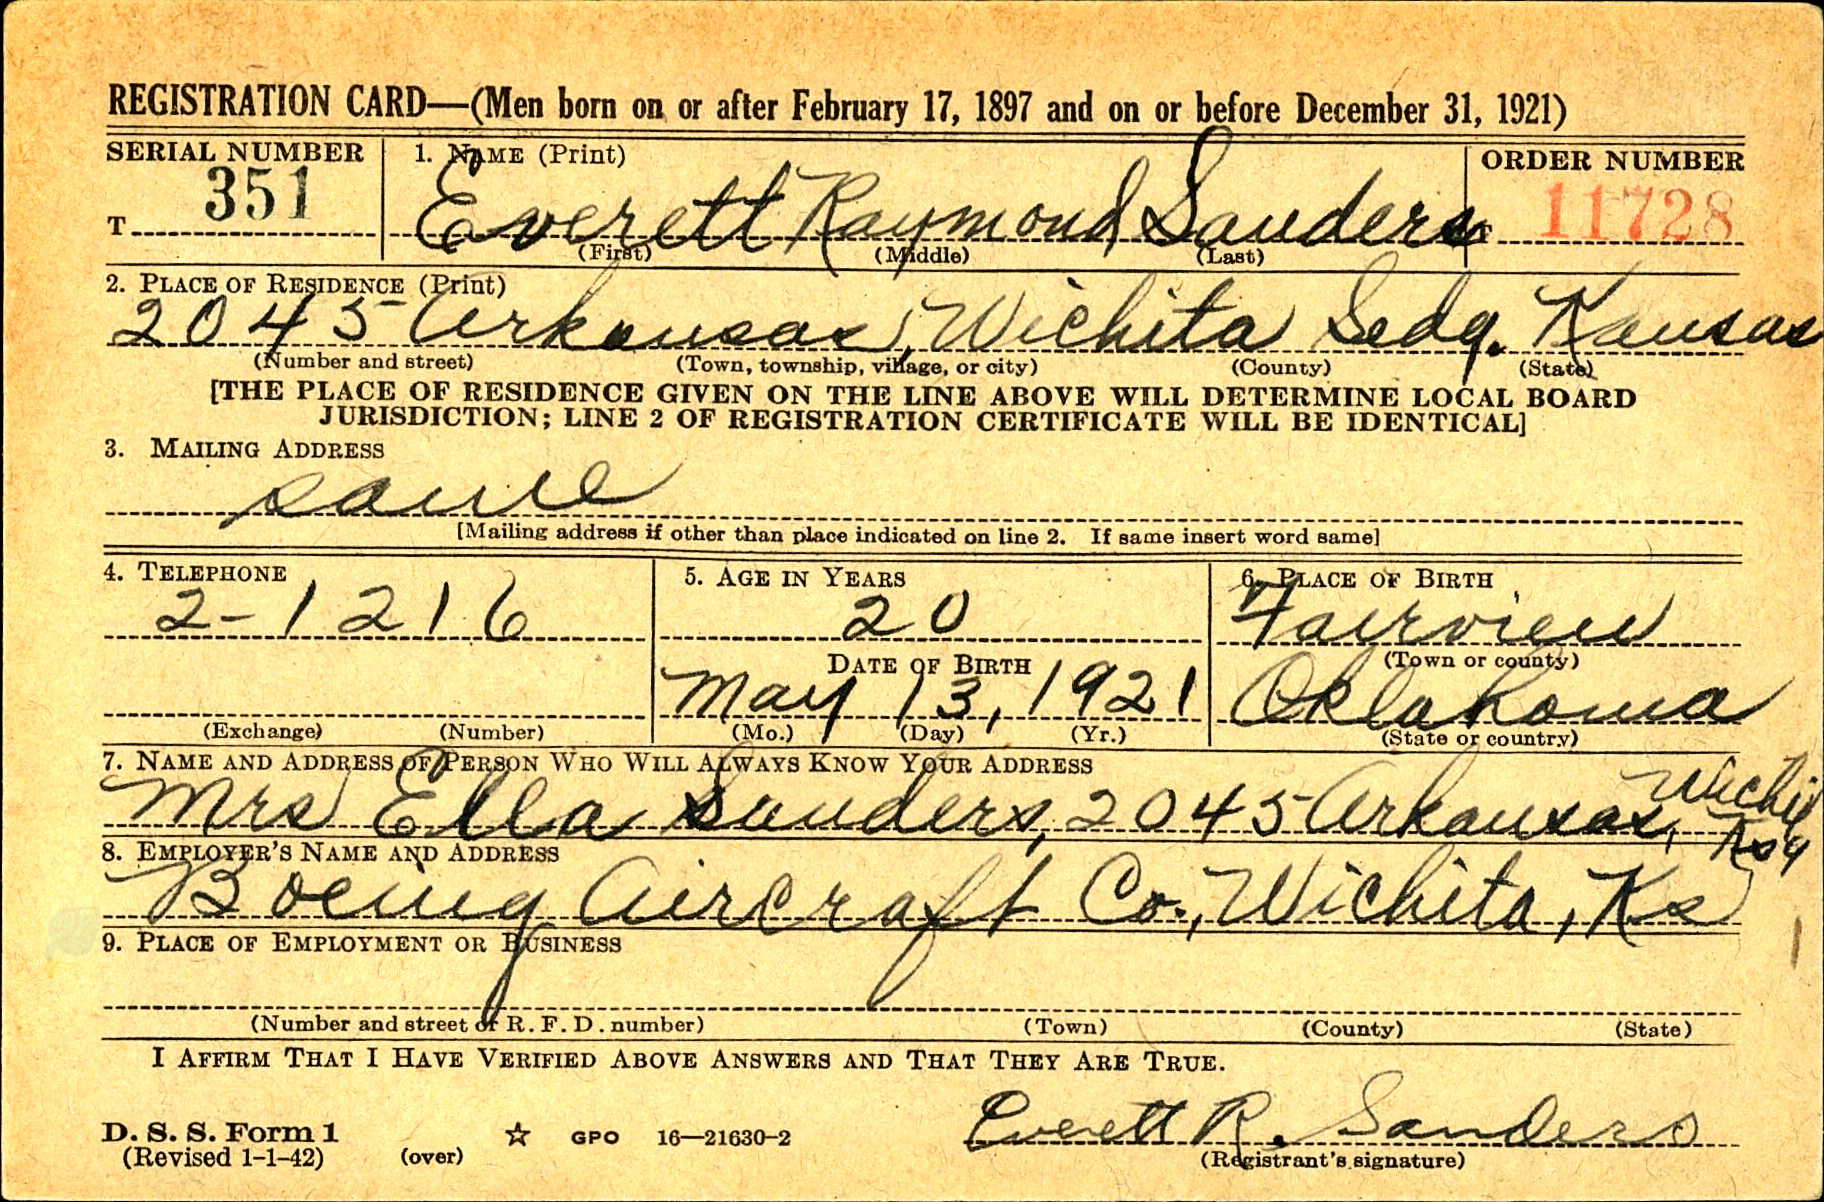 REGISTRATION CARD—(Men born on or after February 17, 1897 and on or before December 31, 1921)
SERIAL NUMBER 1. NAME (Print) ORDER NUMBER
T 351 Everett Raymond Sanders T 11728
(First) (Middle) (Last)
2. PLACE OF RESIDENCE (Print)
2045 Arkansas, Wichita Sedg. Kansas
(Number and street) (Town, township, village, or city) (County) (State)
[THE PLACE OF RESIDENCE GIVEN ON THE LINE ABOVE WILL DETERMINE LOCAL BOARD
JURISDICTION; LINE 2 OF REGISTRATION CERTIFICATE WILL BE IDENTICAL]
3. MAILING ADDRESS
same
[Mailing address if other than place indicated on line 2. If same insert word same]
4. TELEPHONE 5. AGE IN YEARS 6. PLACE OF BIRTH
2-1216 20 Fairview
DATE OF BIRTH (Town or county)
May 13, 1921 Oklahoma
(Exchange) (Number) (Mo.) (Day) (Yr.) (State or country)
7. NAME AND ADDRESS OF PERSON WHO WILL ALWAYS KNOW YOUR ADDRESS
Mrs Ella Sanders, 2045 Arkansas,
8. EMPLOYER'S NAME AND ADDRESS
Boeing Aircraft Co., Wichita, Ks
9. PLACE OF EMPLOYMENT OR BUSINESS
(Number and street or R. F. D. number) (Town) (County) (State)
I AFFIRM THAT I HAVE VERIFIED ABOVE ANSWERS AND THAT THEY ARE TRUE.
Everett R. Sanders
D. S. S. Form 1 GPO 16—21630-2
(Revised 1-1-42) (over) (Registrant's signature)